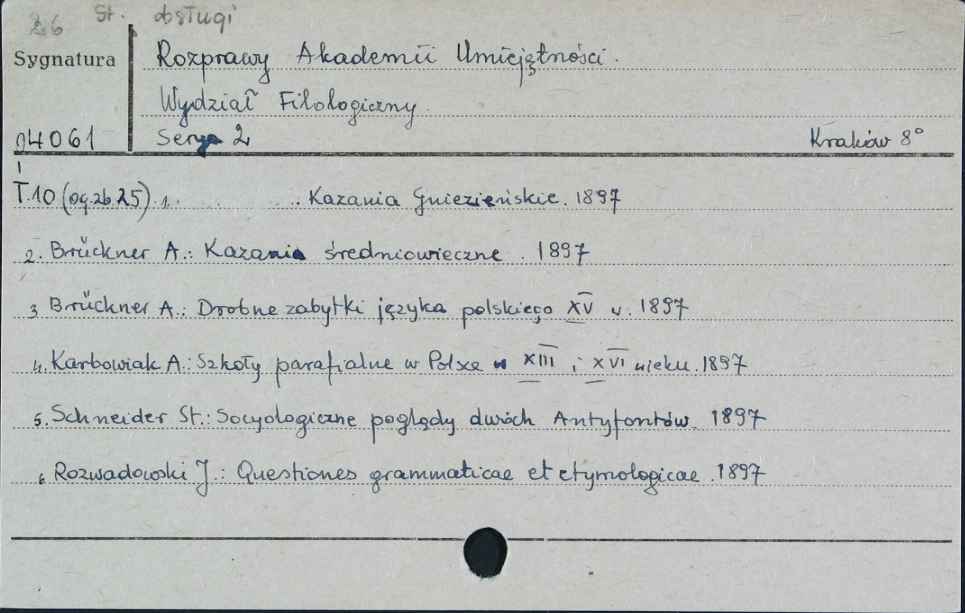 26 St. obsługi
Sygnatura Rozprawy Akademii Umiejętności.
Wydział Filologiczny.
04061 Serya 2 Kraków 8°
T.10 (og.zb. 25) 1. Kazania Gnieznieńskie. 1897
2. Brückner A.: Kazania średniowieczne. 1897
3 Brückner A.: Drobne zabytki języka polskiego XV v. 1897
4. Karbowiak A.: Szkoły parafialne w Polsce w XIII i XVI wieku. 1897
5. Schneider St.: Socyologiczne poglądy dwóch Antyfontów. 1897
6 Rozwadowski J.: Questiones grammaticae et etymologicae. 1897